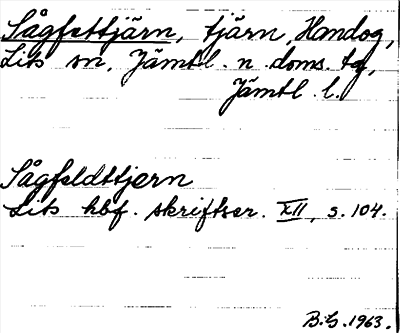 Sågfettjärn, tjärn, Handog,
Lits sn. Jämtl. n. doms. tg,
Jämtl. l.
Sågfeldttjern
Lits hbf. skriftser. XII, s. 104.
B.G. 1963.